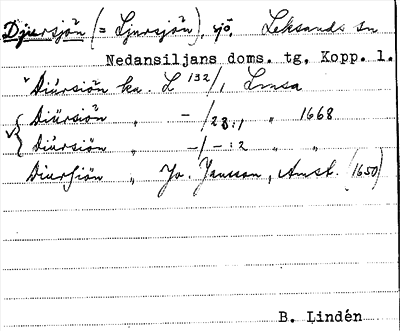 Djursjön (= Ljursjön), sjö, Leksands sn
Nedansiljans doms. tg, Kopp. l.
Diúrsiön ka. L 132/1 Lmsa
Diürsiön " -/28:1 " 1668
Diúrsiön " -/-:2 " "
Diursiön " Jo. Jansson, Amst. (1650)
B. Lindén